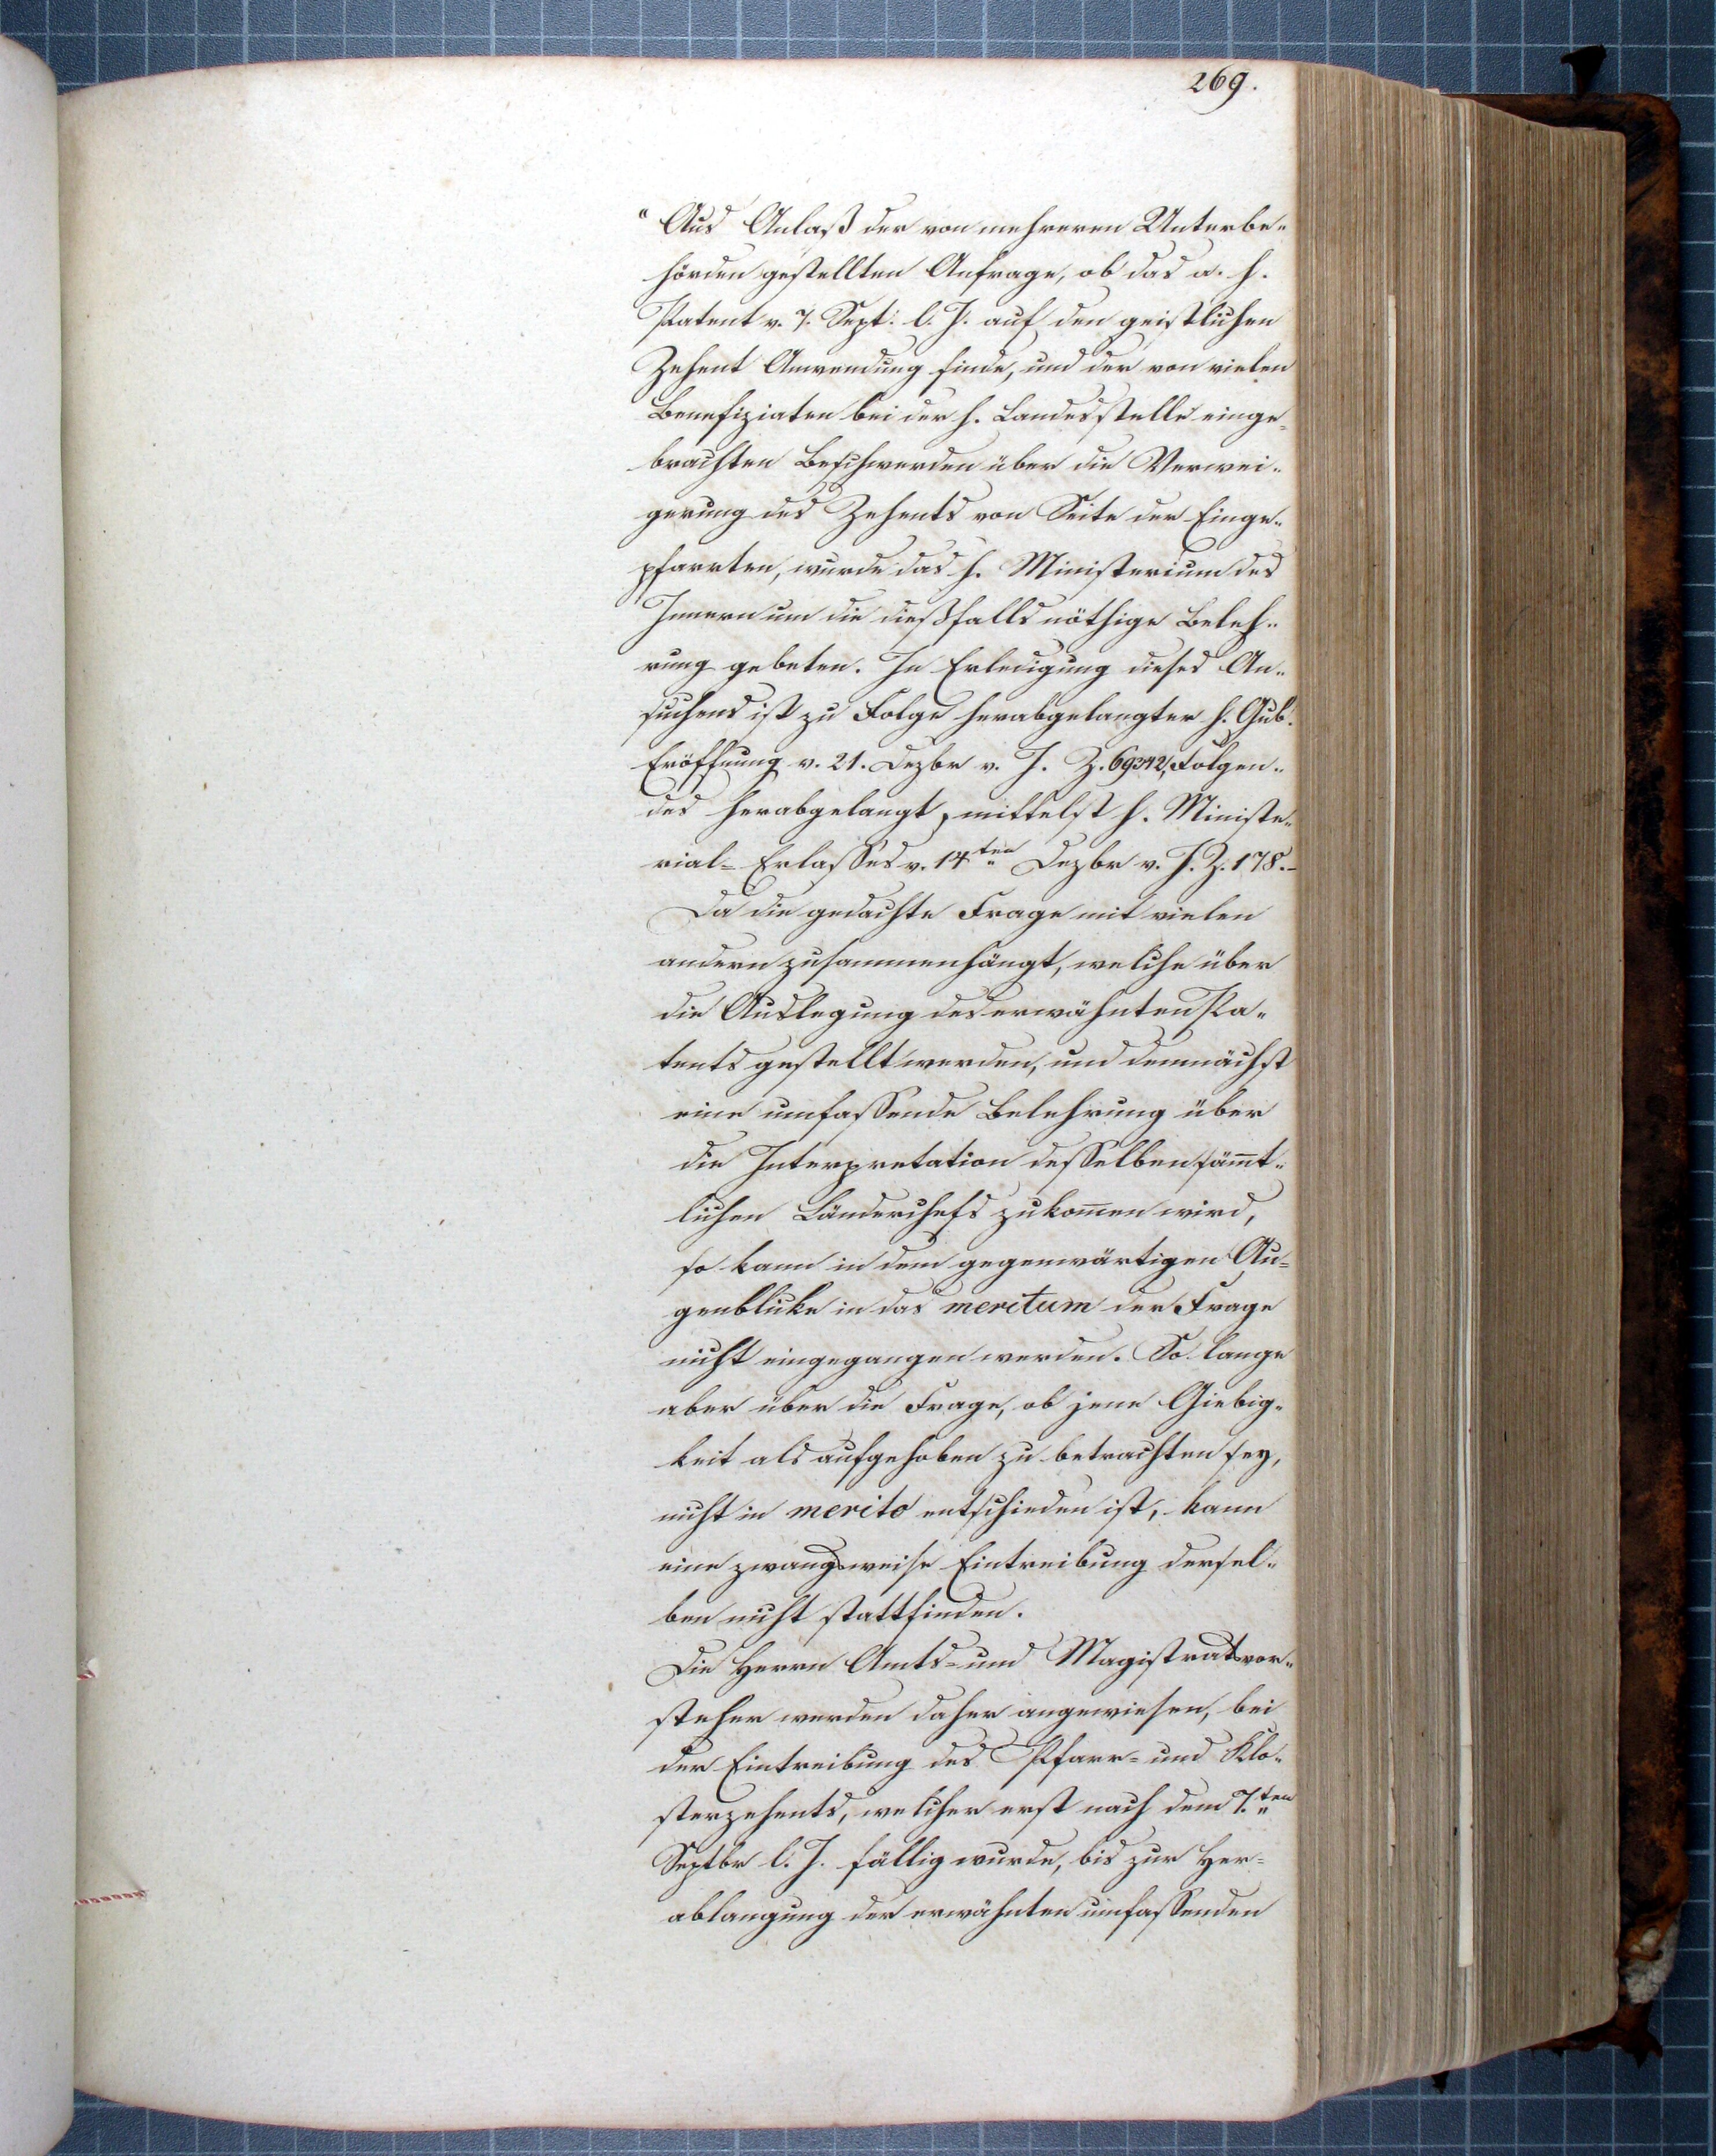 269.
"Aus Anlaß der von mehreren Unterbe-
hörden gestellten Anfrage, ob das a. h.
Patent v. 7. Sept: l. J. auf den geistlichen
Zehent Anwendung finde, und der von vielen
Benefiziaten bei der h. Landesstelle einge-
brachten Beschwerden über die Verwei-
gerung des Zehents von Seite der Einge-
pfarrten, wurde das h. Ministerium des
Innern um die dießfalls nöthige Beleh-
rung gebeten. In Erledigung dieses An-
suchens ist zu Folge herabgelangter h. Gub.
Eröffnung v. 21. Dezbr v. J. Z. 69342, Folgen-
des herabgelangt, mittelst h. Ministe-
rial-Erlasses v. 14ten Dezbr v. J. Z. 178.-
Da die gedachte Frage mit vielen
andern zusammenhängt, welche über
die Auslegung des erwähnten Pa-
tents gestellt werden, und demnächst
eine umfassende Belehrung über
die Interpretation desselben sämt-
lichen Länderchefs zukomen wird,
so kann in dem gegenwärtigen Au-
genblicke in das meritum der Frage
nicht eingegangen werden. So lange
aber über die Frage, ob jene Giebig-
keit als aufgehoben zu betrachten sey,
nicht in merito entschieden ist, kann
eine zwangsweise Eintreibung dersel-
ben nicht stattfinden.
Die Herrn Amts- und Magistratsvor-
steher werden daher angewiesen, bei
der Eintreibung des Pfarr- und Klo-
sterzehents, welcher erst nach dem 7.ten
Septbr l. J. fällig wurde, bis zur Her-
ablangung der erwähnten umfassenden